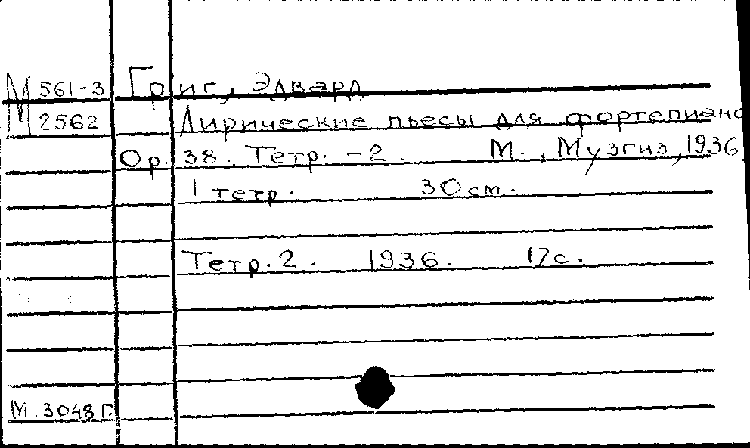 М 561-3 Григ, Эдвард
М 2562 Лирические пьесы для фортепиано
Ор. 38. Тетр. -2. М., Музгиз, 1936
1 тетр. 30 см.
Тетр. 2. 1936. 17 с.
М. 3048 г.